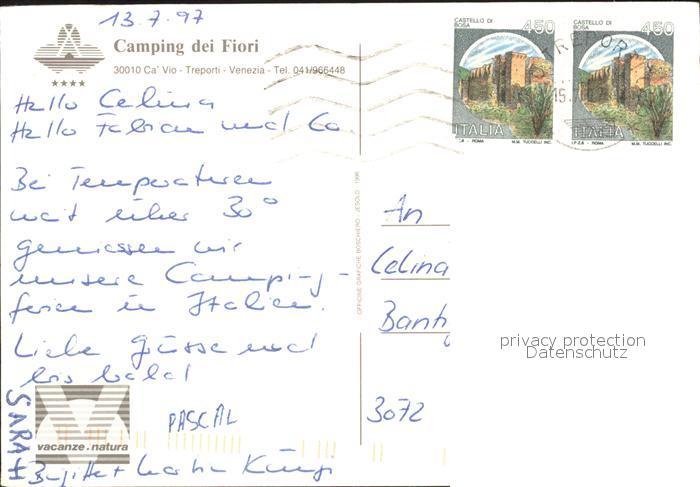 13.7.97
Camping dei Fiori
30010 Ca' Vio - Treporti - Venezia - Tel. 041/966448
CASTELLO DI BOSA 450
ITALIA
I.P.Z.S. - ROMA M.M. TUCCELLI INC.
CASTELLO DI BOSA 450
ITALIA
I.P.Z.S. - ROMA M.M. TUCCELLI INC.
Hallo Celina
Hallo Fabian und Co.
Bei Temperaturen
weit über 30°
geniessen wir
unsere Camping-
ferien in Italien.
Liebe Grüsse und
bis bald
SARAH
PASCAL
Brigitte + Martin
vacanze natura
OFFICINE GRAFICHE BOSCHIERO - JESOLO - 1996
An
Celina
3072
privacy protection
Datenschutz